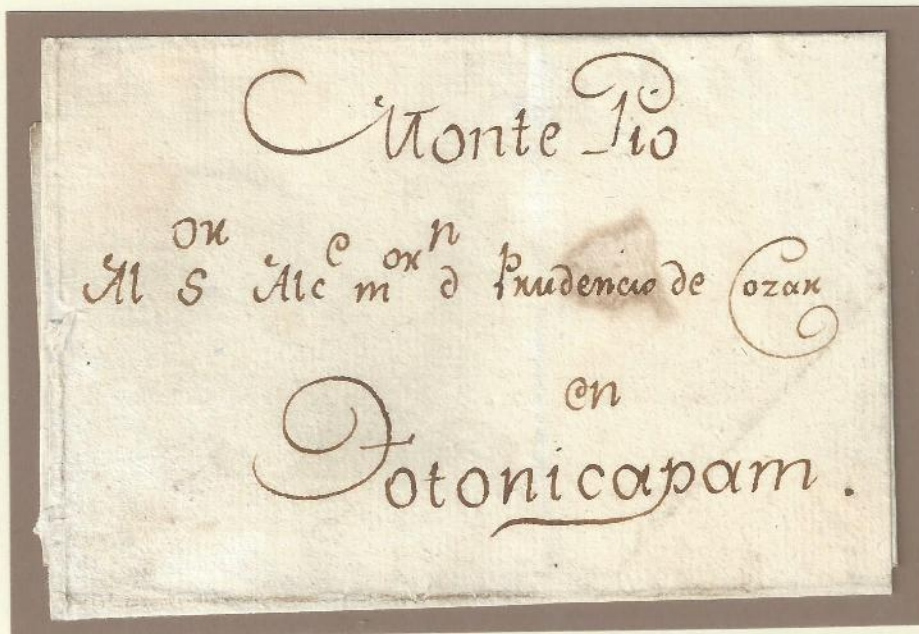 Monte Pio
Al S^or Alc^e m^or d^n Prudencio de Cozar
en
Totonicapam.